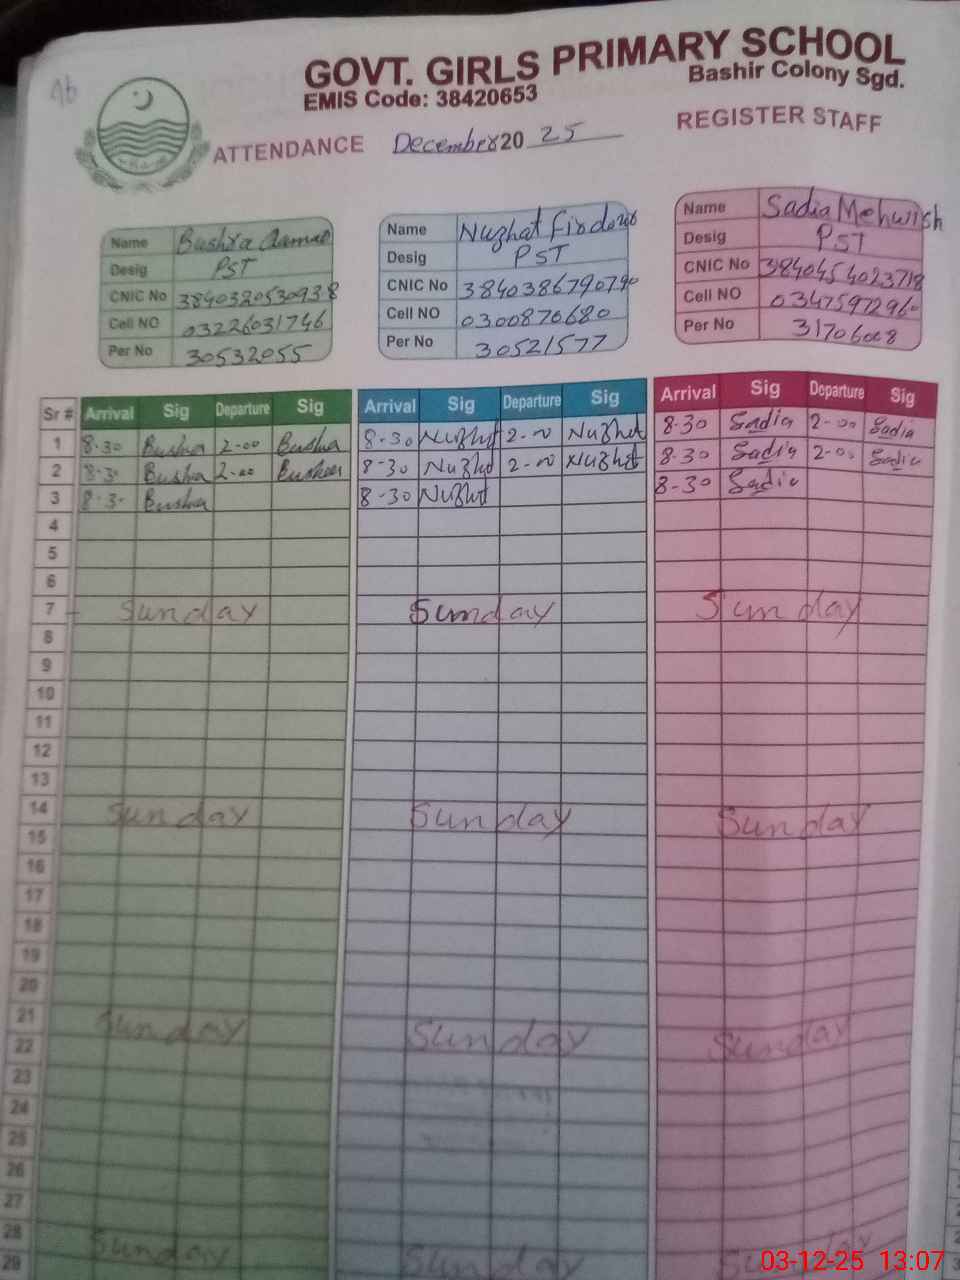 GOVT. GIRLS PRIMARY SCHOOL
Bashir Colony Sgd.
EMIS Code: 38420653
ATTENDANCE December 2025 REGISTER STAFF
Name Bushra Aamar
Desig PST
CNIC No 3840320530938
Cell NO 03226031746
Per No 30532055
Name Nuzhat Firdous
Desig PST
CNIC No 3840386790790
Cell NO 0300870680
Per No 30521577
Name Sadia Mehwish
Desig PST
CNIC No 3840454023718
Cell NO 03475972960
Per No 31706008
Sr # Arrival Sig Departure Sig Arrival Sig Departure Sig Arrival Sig Departure Sig
1 8-30 Bushra 2-00 Bushra 8-30 Nuzhat 2-00 Nuzhat 8-30 Sadia 2-00 Sadia
2 8-30 Bushra 2-00 Bushra 8-30 Nuzhat 2-00 Nuzhat 8-30 Sadia 2-00 Sadia
3 8-30 Bushra 8-30 Nuzhat 8-30 Sadia
4
5
6
7 Sunday Sunday Sunday
8
9
10
11
12
13
14 Sunday Sunday Sunday
15
16
17
18
19
20
21 Sunday Sunday Sunday
22
23
24
25
26
27
28 Sunday Sunday Sunday
29
03-12-25 13:07